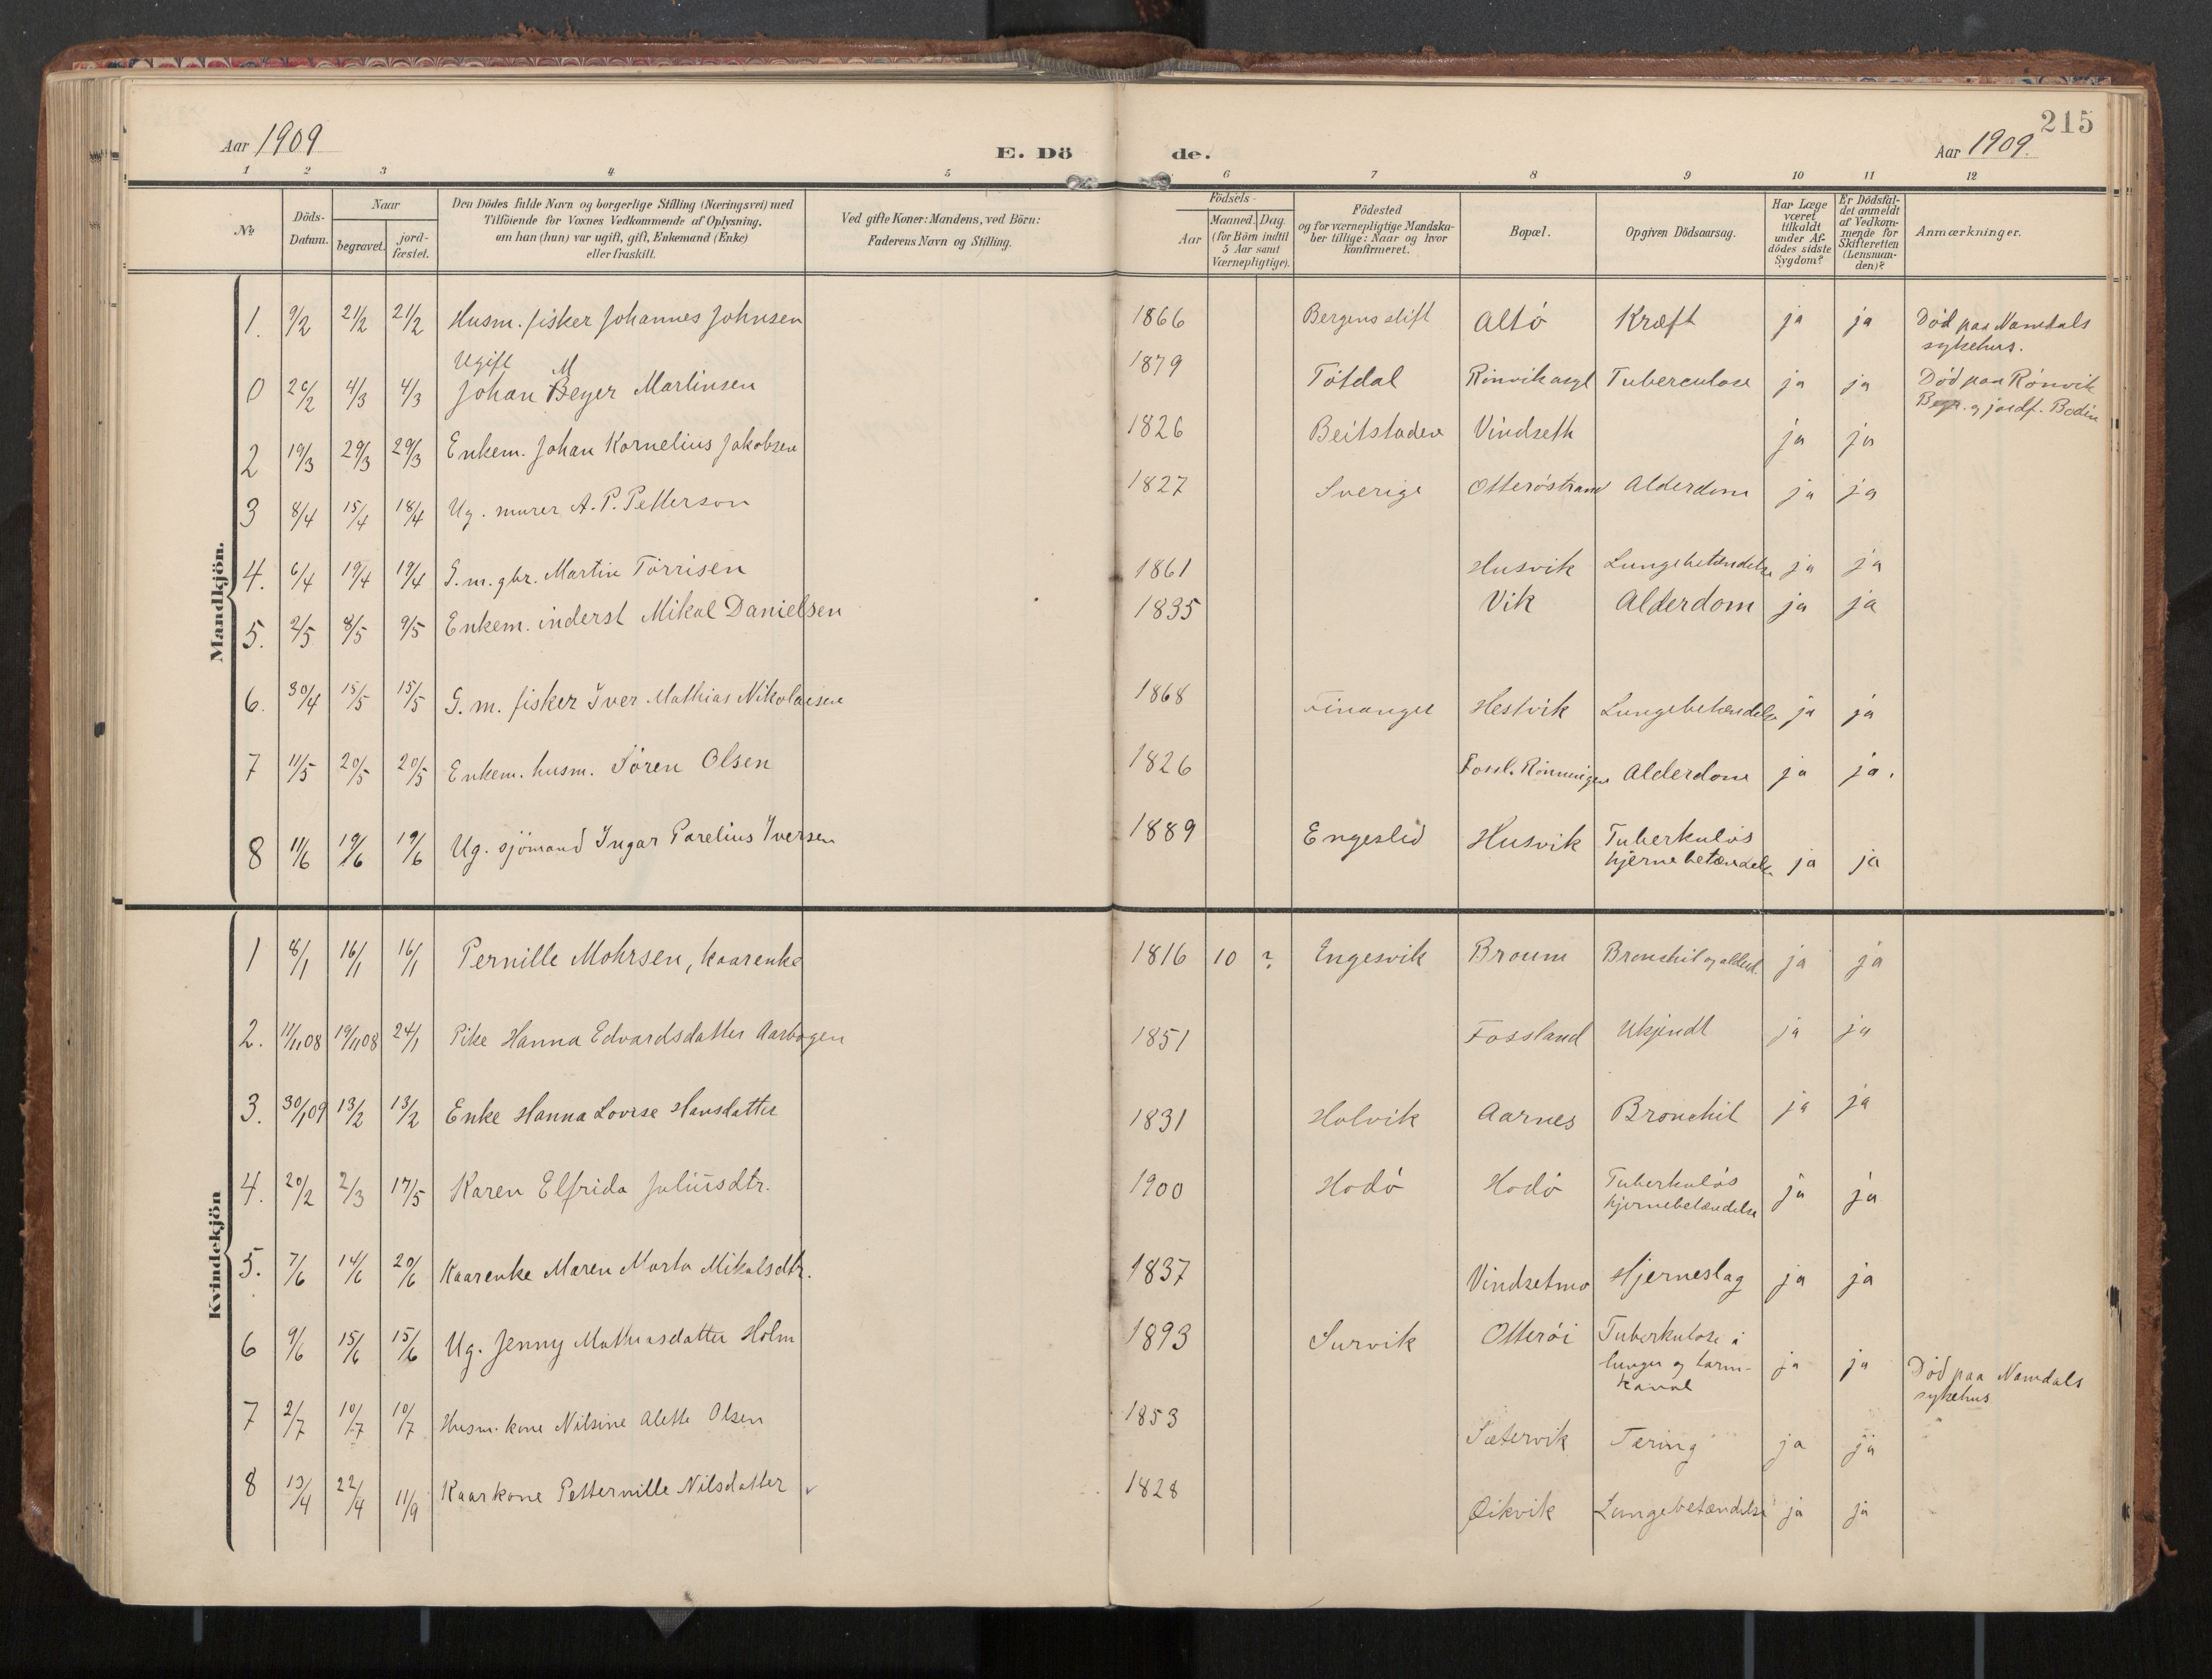 215
Aar 1909
E. Dö
de.
Aar 1909.
1 2 3 4 5 6 7 8 9 10 11 12
№
Döds-
Datum.
Naar
begravet.
jord-
fæstet.
Den Dödes fulde Navn og borgerlige Stilling (Næringsvei) med
Tilföiende for Voxnes Vedkommende af Oplysning,
om han (hun) var ugift, gift, Enkemand (Enke)
eller fraskilt.
Ved gifte Koner: Mandens, ved Börn:
Faderens Navn og Stilling.
Födsels-
Aar
Maaned. Dag.
(for Börn indtil
5 Aar samt
Værnepligtige).
Födested
og for værnepligtige Mandska-
ber tillige: Naar og hvor
konfirmeret.
Bopæl.
Opgiven Dödsaarsag.
Har Læge
været
tilkaldt
under Af-
dödes sidste
Sygdom?
Er Dödsfal-
det anmeldt
af Vedkom-
mende for
Skifteretten
(Lensman-
den)?
Anmærkninger.
Mandkjön.
1. 9/2 21/2 21/2 Husm. fisker Johannes Johnsen 1866 Bergens stift Altö Kræft ja ja Död paa Namdals
sykehus.
Ugift M
0 26/2 4/3 4/3 Johan Beyer Martinsen 1879 Tötdal Rönvik asyl Tuberculose ja ja Död paa Rönvik
Begr. og jordf. Bodin
2 19/3 29/3 29/3 Enkem. Johan Kornelius Jakobsen 1826 Beitstaden Vindseth ja ja
3 8/4 15/4 18/4 Ug. murer A. P. Petterson 1827 Sverige Otteröstrand Alderdom ja ja
4. 6/4 19/4 19/4 G. m. gbr. Martin Törrisen 1861 Husvik Lungebetændelse ja ja
5. 2/5 8/5 9/5 Enkem. inderst Mikal Danielsen 1835 Vik Alderdom ja ja
6. 30/4 15/5 15/5 G. m. fisker Iver Mathias Nikolaisen 1868 Finanger Hestvik Lungebetændelse ja ja
7 11/5 20/5 20/5 Enkem. husm. Sören Olsen 1826 Fossl. Rönningen Alderdom ja ja.
8 11/6 19/6 19/6 Ug. sjömand Ingar Parelius Iversen 1889 Engeslid Husvik Tuberkulös
hjernebetændelse ja ja
Kvindekjön
1 8/1 16/1 16/1 Pernille Mohrsen, kaarenke 1816 10 ? Engesvik Broum Bronchit og alderd. ja ja
2. 11/11 08 19/11 08 24/1 Pike Hanna Edvardsdatter Aarbogen 1851 Fossland Ukjendt ja ja
3. 30/1 09 13/2 13/2 Enke Hanna Lovise Hansdatter 1831 Holvik Aarnes Bronchit ja ja
4. 20/2 2/3 17/5 Karen Elfrida Juliusdtr. 1900 Hodö Hodö Tuberkulös
hjernebetændelse ja ja
5. 7/6 14/6 20/6 Kaarenke Maren Marta Mikalsdtr. 1837 Vindsetmo Hjerneslag ja ja
6 9/6 15/6 15/6 Ug. Jenny Mathiasdatter Holm 1893 Survik Otteröi Tuberkulose i
lunger og tarm-
kanal ja ja Död paa Namdals
sykehus
7 2/7 10/7 10/7 Husm. kone Nilsine Alette Olsen 1853 Sætervik Tæring ja ja
8 13/4 22/4 11/9 Kaarkone Petternille Nilsdatter 1828 Öikvik Lungebetændelse ja ja